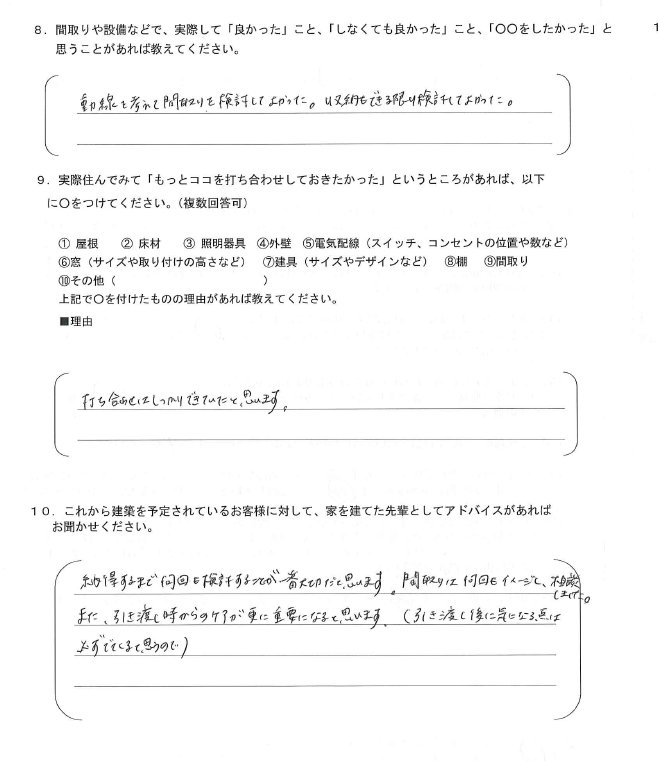 8. 間取りや設備などで、実際して「良かった」こと、「しなくても良かった」こと、「〇〇をしたかった」と
1
思うことがあれば教えてください。
動線を考えて間取りを検討してよかった。収納もできる限り検討してよかった。
9. 実際住んでみて「もっとココを打ち合わせしておきたかった」というところがあれば、以下
に〇をつけてください。（複数回答可）
① 屋根 ② 床材 ③ 照明器具 ④外壁 ⑤電気配線（スイッチ、コンセントの位置や数など）
⑥窓（サイズや取り付けの高さなど） ⑦建具（サイズやデザインなど） ⑧棚 ⑨間取り
⑩その他（ ）
上記で〇を付けたものの理由があれば教えてください。
■理由
打ち合わせはしっかりできていたと思います。
10. これから建築を予定されているお客様に対して、家を建てた先輩としてアドバイスがあれば
お聞かせください。
納得するまで何回も検討することが一番大切だと思います。間取りは何回もイメージし、相談
しました。
また、引き渡し時からのケアが更に重要になると思います。（引き渡し後に気になる点は
必ずでてくると思うので）